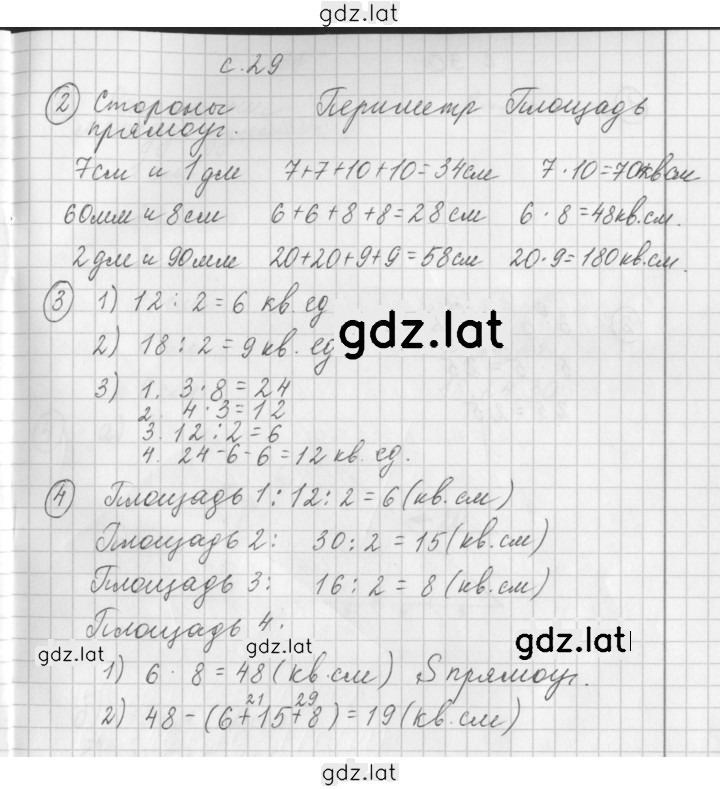 gdz.lat
с. 29
2 Стороны прямоуг. Периметр Площадь
7см и 1 дм 7+7+10+10=34см 7·10=70кв см
60мм и 8см 6+6+8+8=28см 6·8=48кв.см.
2 дм и 90мм 20+20+9+9=58см 20·9=180кв.см.
3 1) 12:2=6 кв. ед
2) 18:2=9 кв. ед
gdz.lat
3) 1. 3·8=24
2. 4·3=12
3. 12:2=6
4. 24-6-6=12 кв. ед.
4 Площадь 1: 12:2=6(кв.см)
Площадь 2: 30:2=15(кв.см)
Площадь 3: 16:2=8(кв.см)
Площадь 4:
gdz.lat gdz.lat gdz.lat
1) 6·8=48(кв.см) S прямоуг.
21 29
2) 48-(6+15+8)=19(кв.см)
gdz.lat